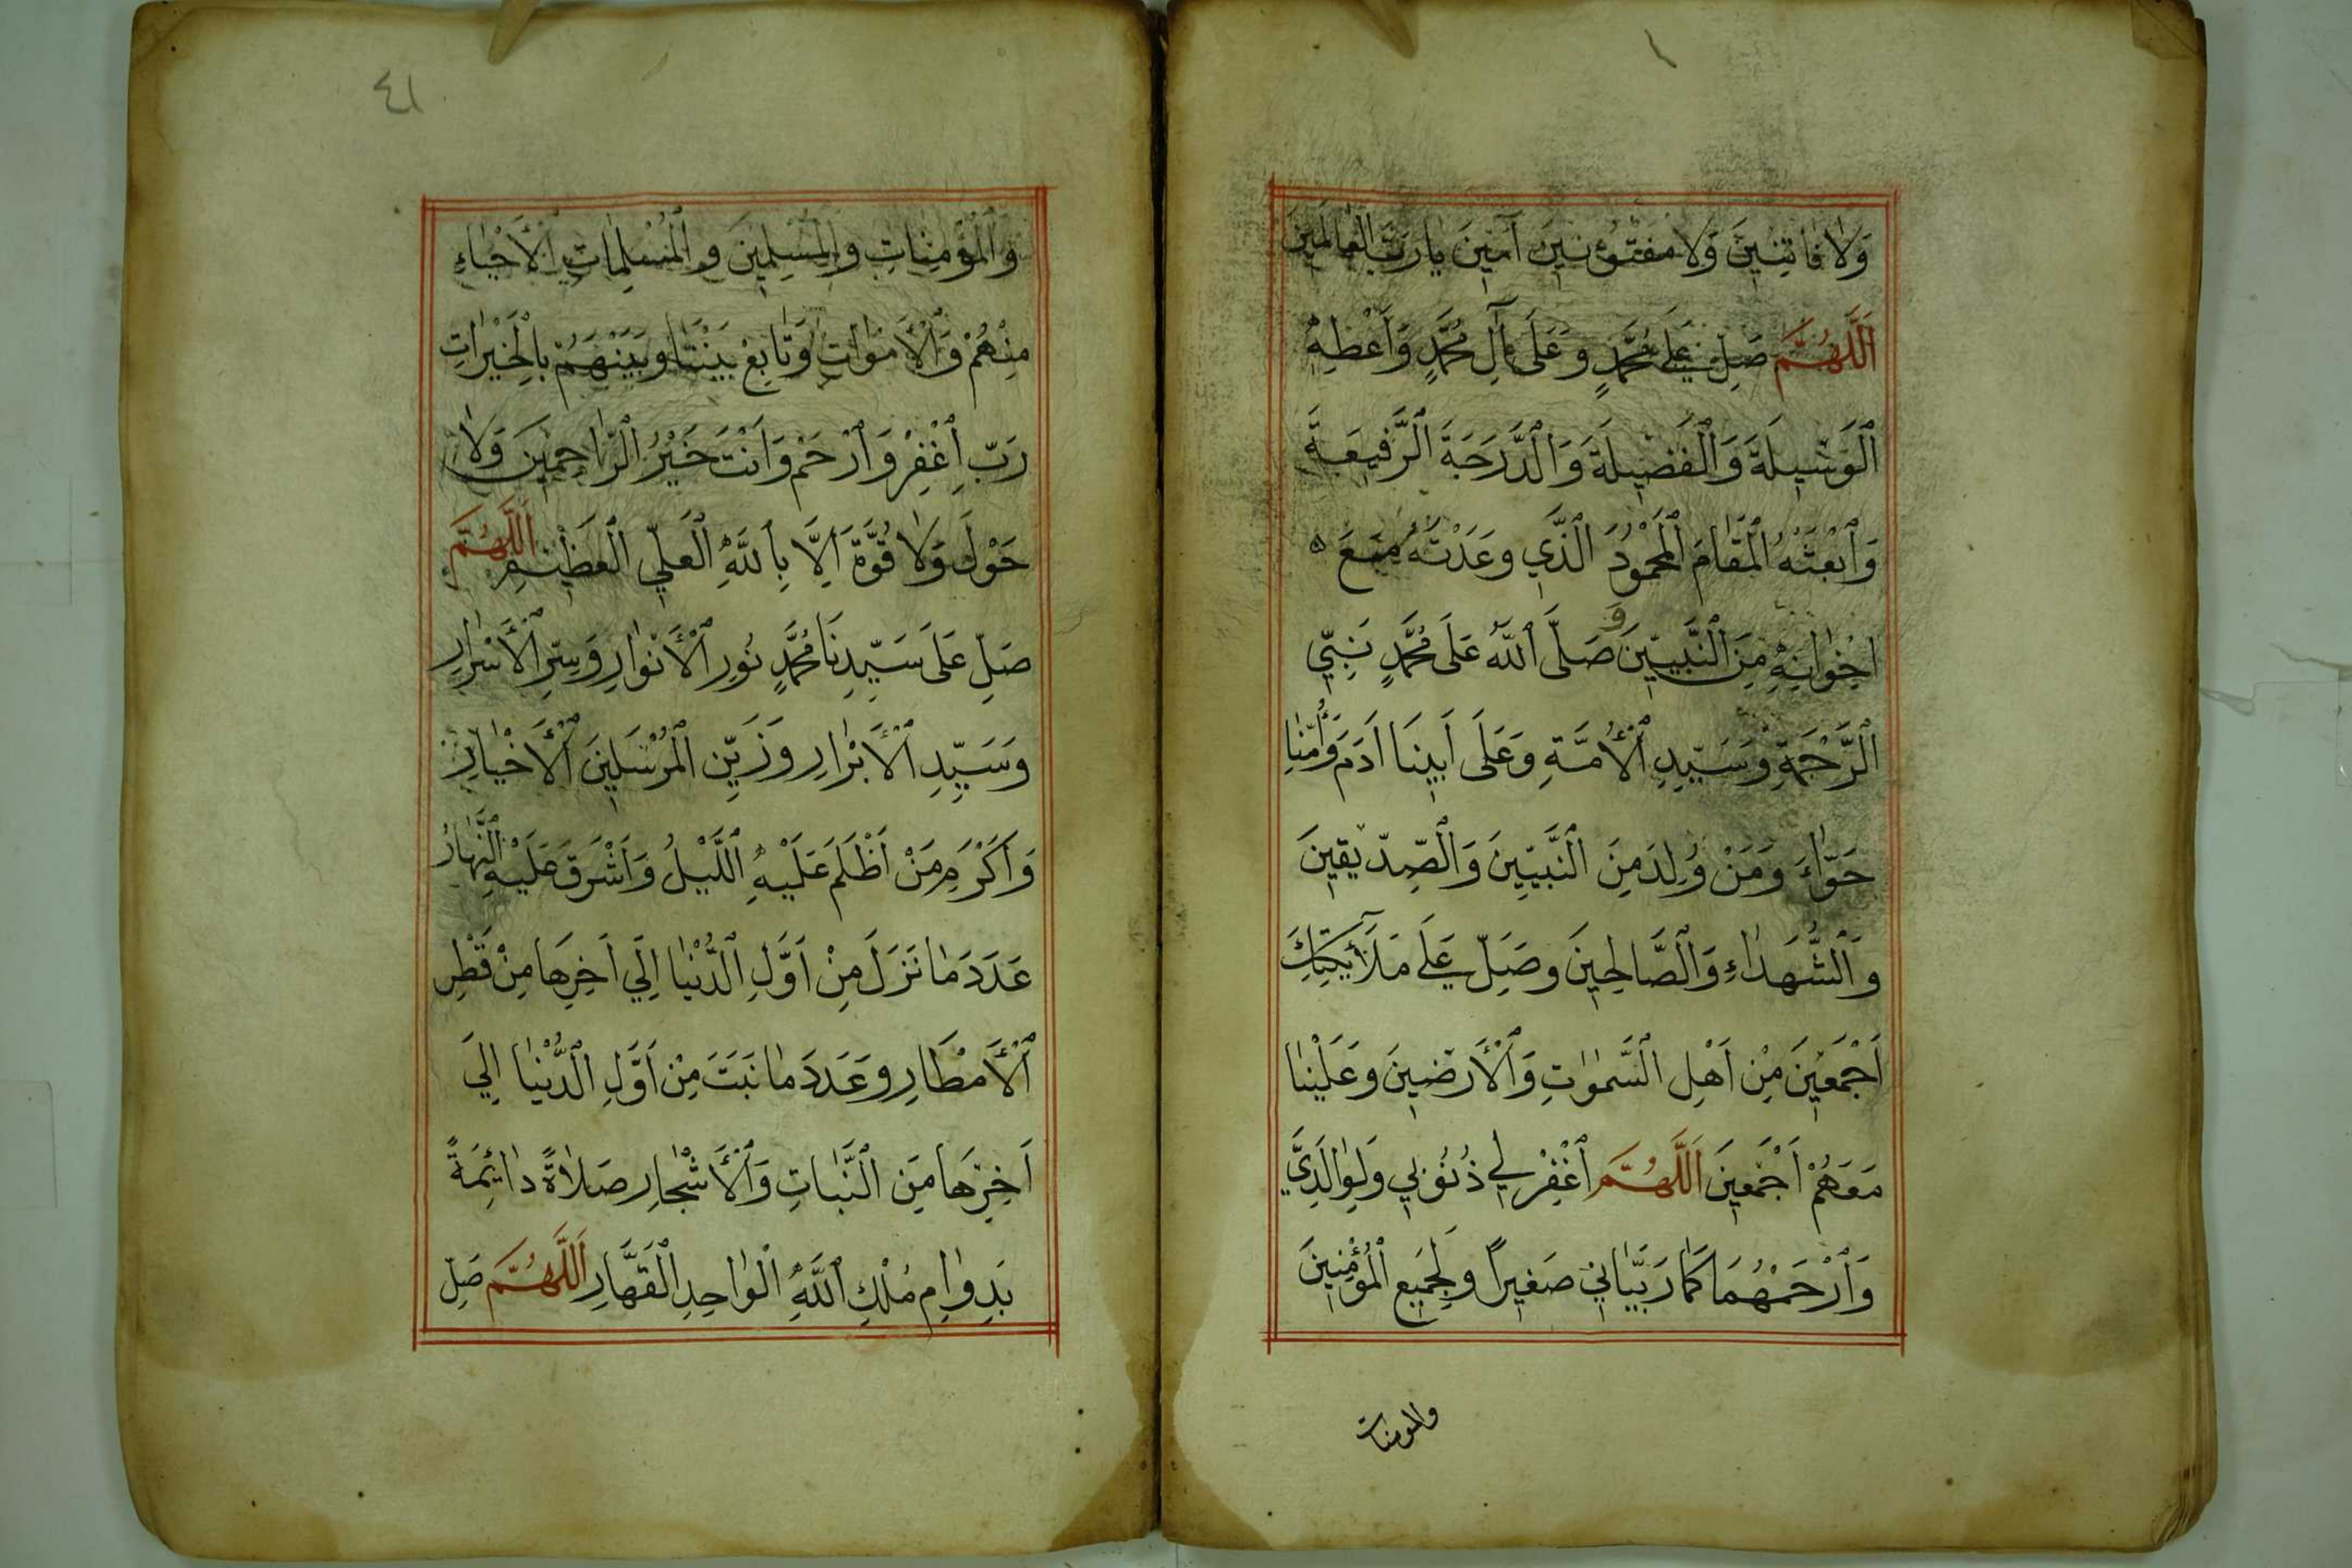 وَلَا فَاتِنِينَ وَلَا مَفْتُونِينَ آمِينَ يَا رَبَّ الْعَالَمِينَ
اَللَّهُمَّ صَلِّ عَلَى مُحَمَّدٍ وَعَلَى آلِ مُحَمَّدٍ وَأَعْطِهِ
الْوَسِيلَةَ وَالْفَضِيلَةَ وَالدَّرَجَةَ الرَّفِيعَةَ
وَابْعَثْهُ الْمَقَامَ الْمَحْمُودَ الَّذِي وَعَدْتَهُ مَعَ
اِخْوَانِهِ مِنَ النَّبِيِّينَ وَ صَلَّى اللهُ عَلَى مُحَمَّدٍ نَبِيِّ
الرَّحْمَةِ وَسَيِّدِ الْأُمَّةِ وَعَلَى أَبِينَا آدَمَ وَأُمِّنَا
حَوَّاءَ وَمَنْ وُلِدَ مِنَ النَّبِيِّينَ وَالصِّدِّيقِينَ
وَالشُّهَدَاءِ وَالصَّالِحِينَ وَصَلِّ عَلَى مَلَآئِكَتِكَ
أَجْمَعِينَ مِنْ أَهْلِ السَّمٰوٰاتِ وَالْأَرَضِينَ وَعَلَيْنَا
مَعَهُمْ أَجْمَعِينَ اَللَّهُمَّ اغْفِرْ لِي ذُنُوبِي وَلِوَالِدَيَّ
وَارْحَمْهُمَا كَمَا رَبَّيَانِي صَغِيرًا وَلِجَمِيعِ الْمُؤْمِنِينَ
والمومنات
٤١
وَالْمُؤْمِنَاتِ وَالْمُسْلِمِينَ وَالْمُسْلِمَاتِ الْأَحْيَاءِ
مِنْهُمْ وَالْأَمْوَاتِ وَتَابِعْ بَيْنَنَا وَبَيْنَهُمْ بِالْخَيْرَاتِ
رَبِّ اغْفِرْ وَارْحَمْ وَأَنْتَ خَيْرُ الرَّاحِمِينَ وَلَا
حَوْلَ وَلَا قُوَّةَ اِلَّا بِاللهِ الْعَلِيِّ الْعَظِيمِ اَللَّهُمَّ
صَلِّ عَلَى سَيِّدِنَا مُحَمَّدٍ نُورِ الْأَنْوَارِ وَسِرِّ الْأَسْرَارِ
وَسَيِّدِ الْأَبْرَارِ وَزَيِّنِ الْمُرْسَلِينَ الْأَخْيَارِ
وَأَكْرَمِ مَنْ أَظْلَمَ عَلَيْهِ اللَّيْلُ وَأَشْرَقَ عَلَيْهِ النَّهَارُ
عَدَدَ مَا نَزَلَ مِنْ أَوَّلِ الدُّنْيَا اِلَى اَخِرِهَا مِنْ قَطْرِ
الْأَمْطَارِ وَعَدَدَ مَا نَبَتَ مِنْ أَوَّلِ الدُّنْيَا اِلَى
اَخِرِهَا مِنَ النَّبَاتِ وَالْأَشْجَارِ صَلَاةً دَائِمَةً
بِدَوَامِ مُلْكِ اللهِ الْوَاحِدِ الْقَهَّارِ اَللَّهُمَّ صَلِّ